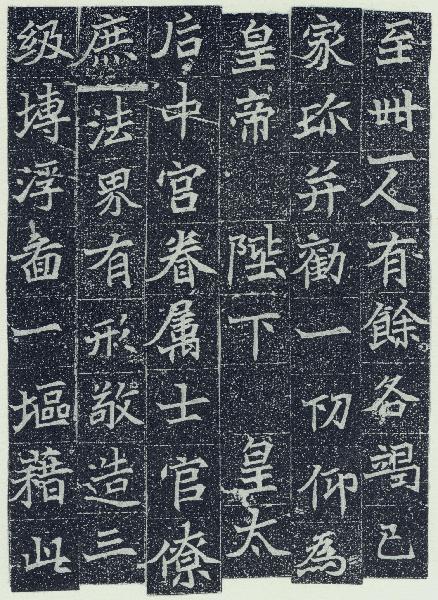 至卌人有餘各竭己
家珎并勸一切仰為
皇帝 陛下 皇太
后中宮眷属士官僚
庶法界有形敬造三
級塼浮啚一塸藉此